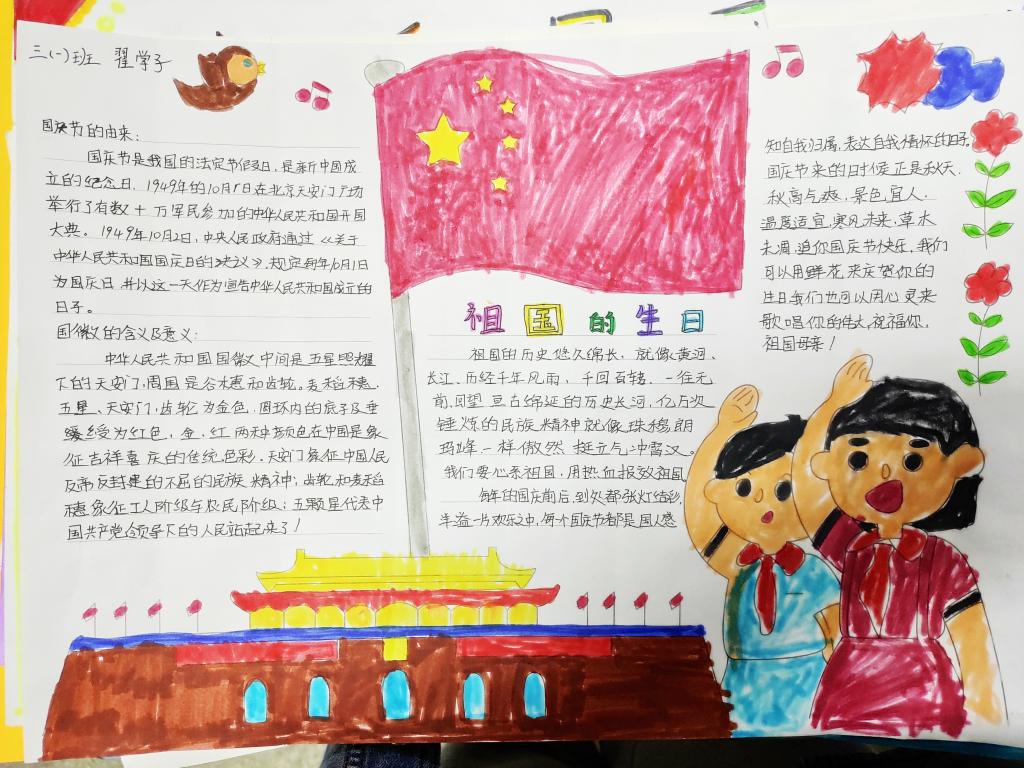 三(一)班 翟学子
国庆节的由来:
国庆节是我国的法定节假日,是新中国成
立的纪念日,1949年的10月1日在北京天安门广场
举行了有数十万军民参加的中华人民共和国开国
大典。1949年10月2日,中央人民政府通过《关于
中华人民共和国国庆日的决议》,规定每年10月1日
为国庆日,并以这一天作为宣告中华人民共和国成立的
日子。
国徽的含义及意义:
中华人民共和国国徽中间是五星照耀
下的天安门,周围是谷穗和齿轮。麦稻穗,
五星、天安门,齿轮为金色,圆环内的底子及垂
绶为红色,金、红两种颜色在中国是象
征吉祥喜庆的传统色彩,天安门象征中国人民
反帝反封建的不屈的民族精神;齿轮和麦稻
穗象征工人阶级与农民阶级;五颗星代表中
国共产党领导下的人民站起来了!
祖国的生日
祖国的历史悠久绵长,就像黄河、
长江、历经千年风雨,千回百转,一往无
前,回望亘古绵延的历史长河,亿万次
锤炼的民族精神就像珠穆朗
玛峰一样傲然挺立气冲霄汉。
我们要心系祖国,用热血报效祖国
每年的国庆前后,到处都张灯结彩,
洋溢一片欢乐之中,每个国庆节都是国人感
知自我归属,表达自我情怀的日子。
国庆节来的日时候正是秋天,
秋高气爽,景色宜人,
温度适宜,寒风未来,草木
未凋,追你国庆节快乐,我们
可以用鲜花来庆贺你的
生日我们也可以用心灵来
歌唱你的伟大,祝福你,
祖国母亲!